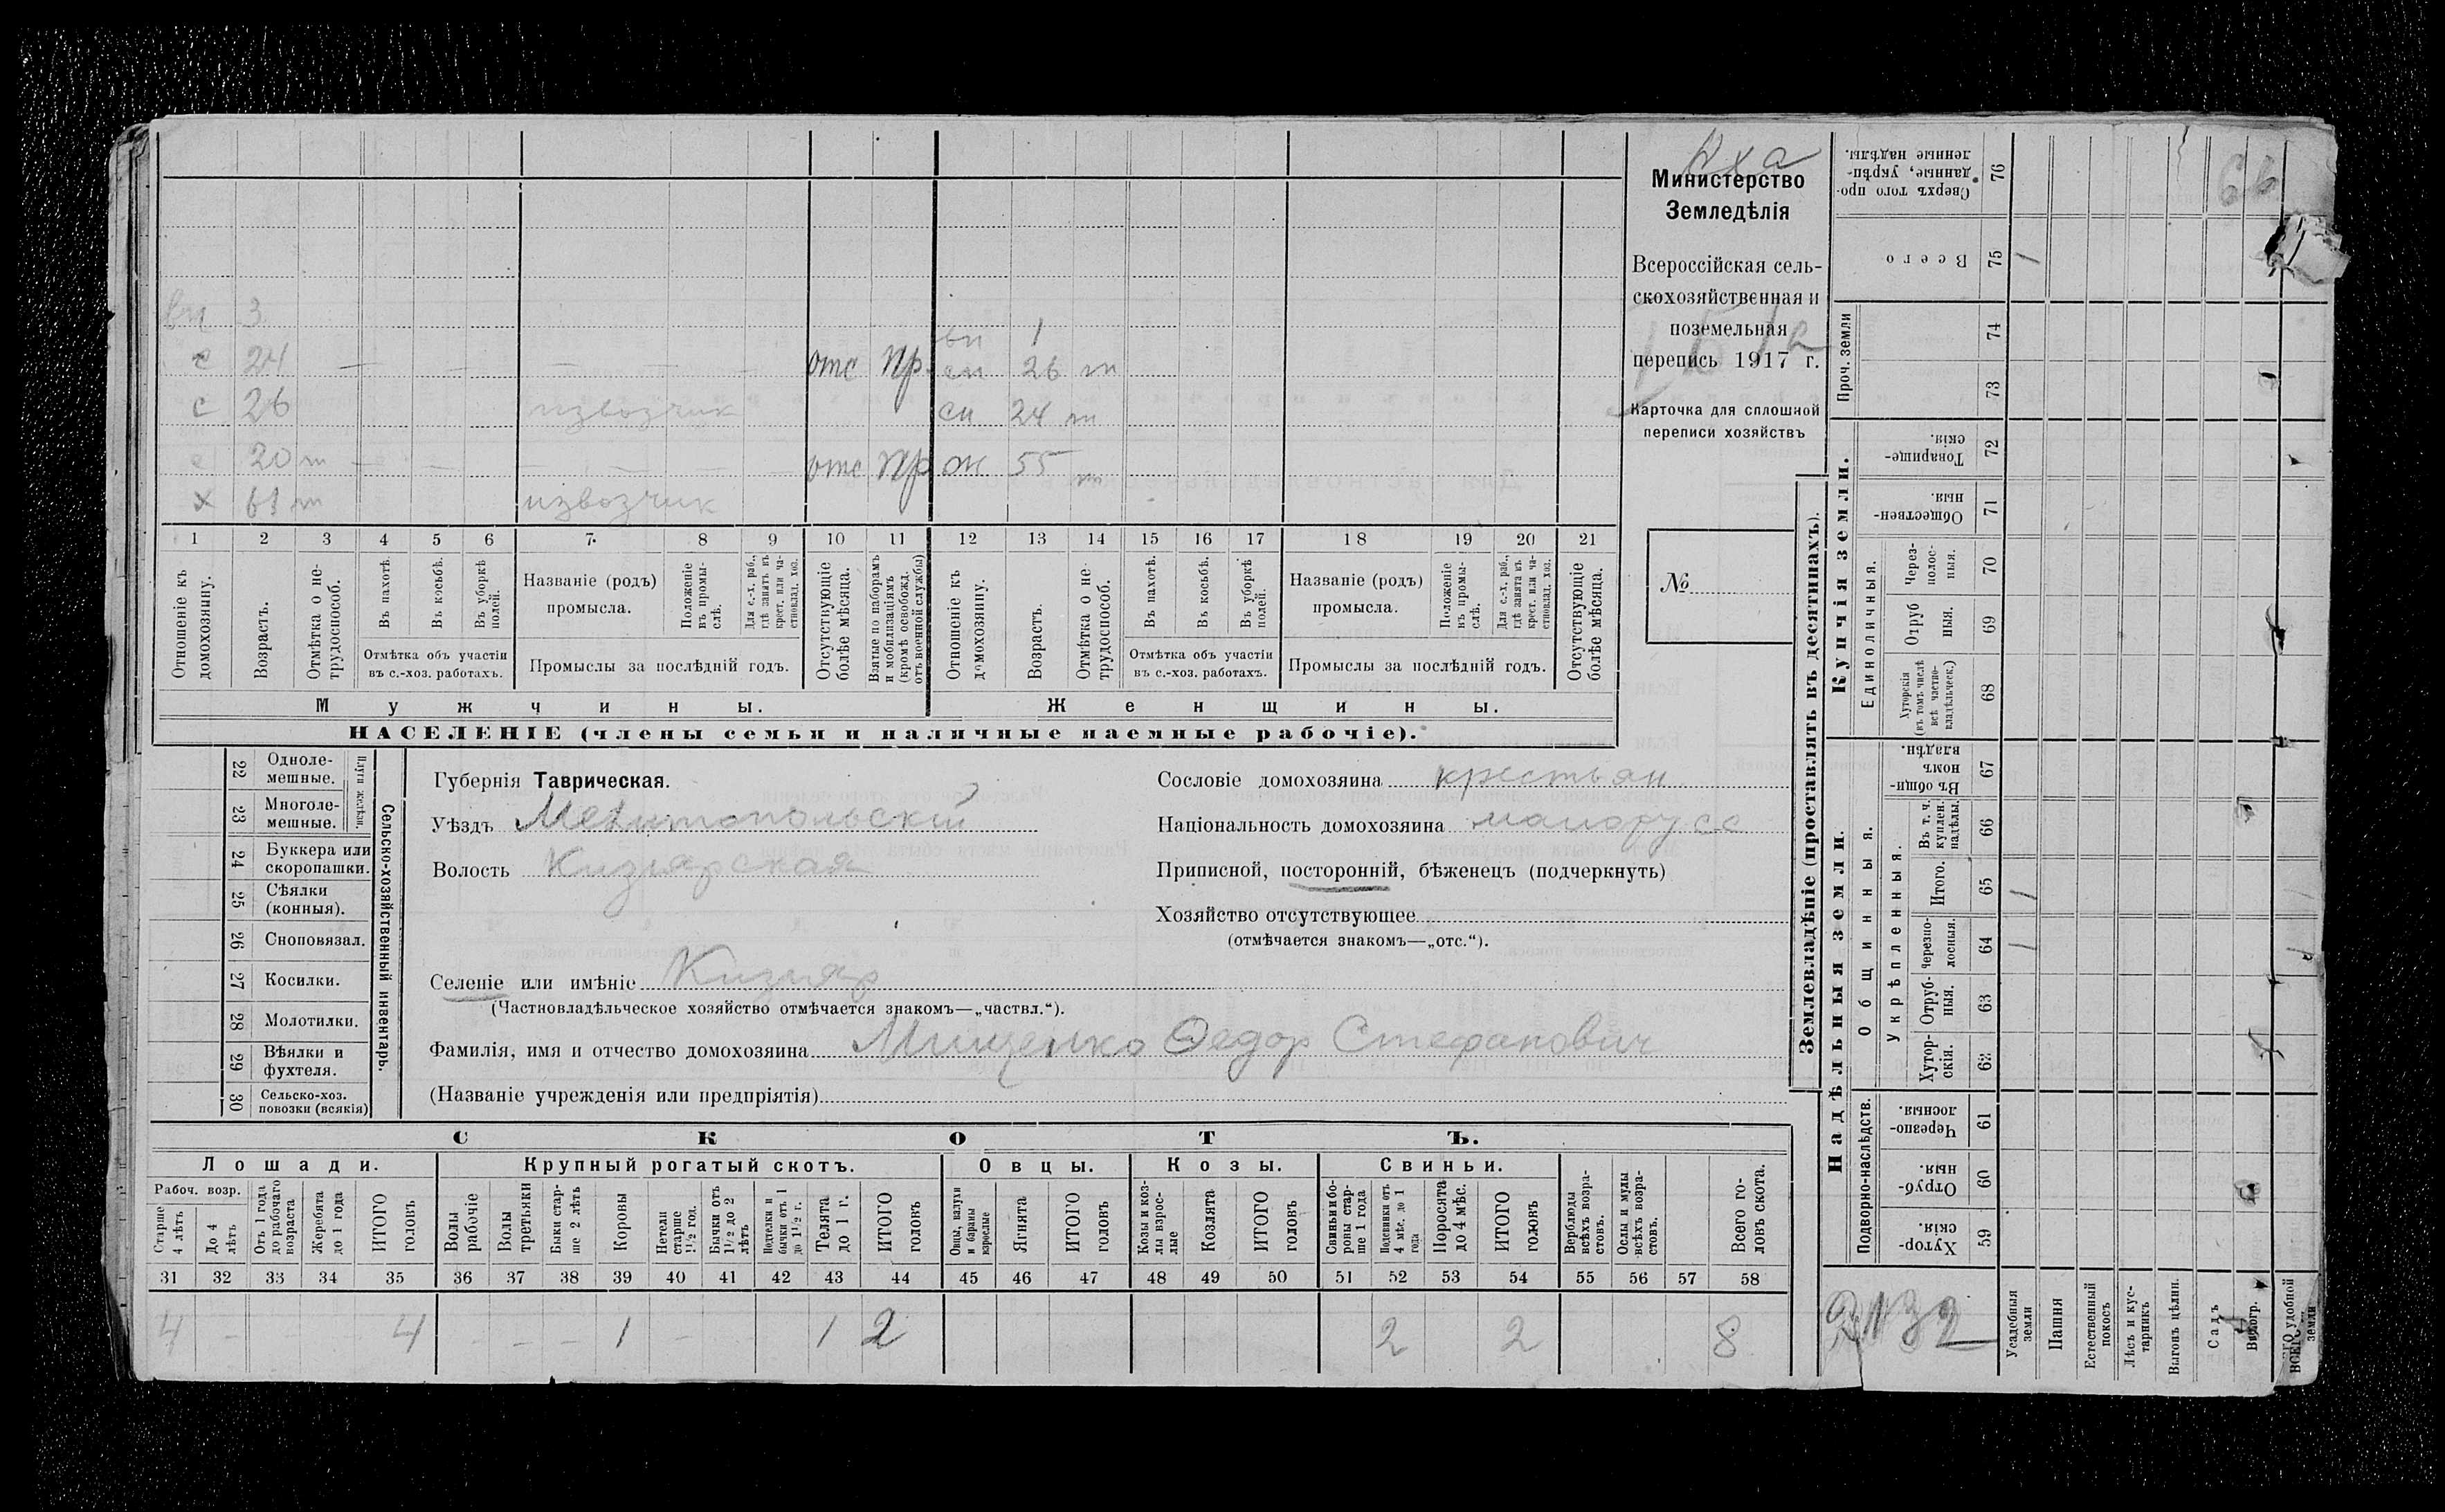 вн 3
вн 1
с 24 — — — — — отс пр. сн 26 т
с 26 извозчик сн 24 т
с 20 т — — — — — отс пр ж 55 т
х 61 т извозчик
1 2 3 4 5 6 7. 8 9 10 11 12 13 14 15 16 17 18 19 20 21
Отношеніе къ домохозяину.
Возрастъ.
Отмѣтка о не-трудоспособ.
Въ пахотѣ.
Въ косьбѣ.
Въ уборкѣ полей.
Отмѣтка объ участіи
въ с.-хоз. работахъ.
Названіе (родъ)
промысла.
Положеніе въ промы-слѣ.
Для с.-х. раб., гдѣ занятъ въ крест. или ча-стновлад. хоз.
Промыслы за послѣдній годъ.
Отсутствующіе болѣе мѣсяца.
Взятые по наборамъ и мобилизаціямъ (кромѣ освобожд. отъ военной службы)
Отношеніе къ домохозяину.
Возрастъ.
Отмѣтка о не-трудоспособ.
Въ пахотѣ.
Въ косьбѣ.
Въ уборкѣ полей.
Отмѣтка объ участіи
въ с.-хоз. работахъ.
Названіе (родъ)
промысла.
Положеніе въ промы-слѣ.
Для с.-х. раб., гдѣ занята въ крест. или ча-стновлад. хоз.
Промыслы за послѣдній годъ.
Отсутствующіе болѣе мѣсяца.
Мужчины.
Женщины.
НАСЕЛЕНІЕ (члены семьи и наличные наемные рабочіе).
Министерство
Земледѣлія
Всероссійская сель-
скохозяйственная и
поземельная
перепись 1917 г.
Карточка для сплошной
переписи хозяйствъ
№
22 Одноле-мешные.
23 Многоле-мешные.
Плуги желѣзн.
24 Буккера или скоропашки.
25 Сѣялки (конныя).
26 Сноповязал.
27 Косилки.
28 Молотилки.
29 Вѣялки и фухтеля.
30 Сельско-хоз. повозки (всякія)
Сельско-хозяйственный инвентарь.
Губернія Таврическая.
Уѣздъ Мелитопольскій
Волость Кизиярская
Селеніе или имѣніе Кизияр
(Частновладѣльческое хозяйство отмѣчается знакомъ—„частвл.“).
Фамилія, имя и отчество домохозяина Мищенко Федор Стефанович
(Названіе учрежденія или предпріятія)
Сословіе домохозяина крестьян.
Національность домохозяина малорусс
Приписной, посторонній, бѣженецъ (подчеркнуть)
Хозяйство отсутствующее
(отмѣчается знакомъ—„отс.“).
СКОТЪ.
Лошади. Крупный рогатый скотъ. Овцы. Козы. Свиньи.
Рабоч. возр.
Старше 4 лѣтъ
До 4 лѣтъ
Отъ 1 года до рабочаго возраста
Жеребята до 1 года
ИТОГО головъ
Волы рабочіе
Волы третьяки
Быки стар-ше 2 лѣтъ
Коровы
Нетели старше 1½ год.
Бычки отъ 1½ до 2 лѣтъ
Подтелки и бычки отъ 1 до 1½ г.
Телята до 1 г.
ИТОГО головъ
Овцы, валухи и бараны взрослые
Ягнята
ИТОГО головъ
Козы и коз-лы взрос-лые
Козлята
ИТОГО головъ
Свиньи и бо-ровы стар-ше 1 года
Подсвинки отъ 4 мѣс. до 1 года
Поросята до 4 мѣс.
ИТОГО головъ
Верблюды всѣхъ возра-стовъ.
Ослы и мулы всѣхъ возра-стовъ.
Всего го-ловъ скота.
31 32 33 34 35 36 37 38 39 40 41 42 43 44 45 46 47 48 49 50 51 52 53 54 55 56 57 58
4 - 4 - - 1 - 1 2 2 2 8
Землевладѣніе (проставлять въ десятинахъ).
Надѣльныя земли.
Купчія земли.
Проч. земли
Подворно-наслѣдств.
Общинныя.
Укрѣпленныя.
Единоличныя.
Сверхъ того про-данные, укрѣп-ленные надѣлы. 76
Всего 75 1
74
73
Товарище-скія. 72
Обществен-ныя. 71
Через-полос-ныя. 70
Отруб ныя. 69
Хуторскія (въ томъ числѣ всѣ частно-владѣльческ.) 68
Въ общин-номъ владѣн. 67
Въ т. ч. куплен. надѣлы. 66
Итого. 65 1
Черезпо-лосныя. 64 1
Отруб-ныя. 63
Хутор-скія. 62
Черезпо-лосныя. 61
Отруб-ныя. 60
Хутор-скія. 59
Усадебныя земли
Пашня
Естественный покосъ
Лѣсъ и кус-тарникъ
Выгонъ цѣлин.
Садъ